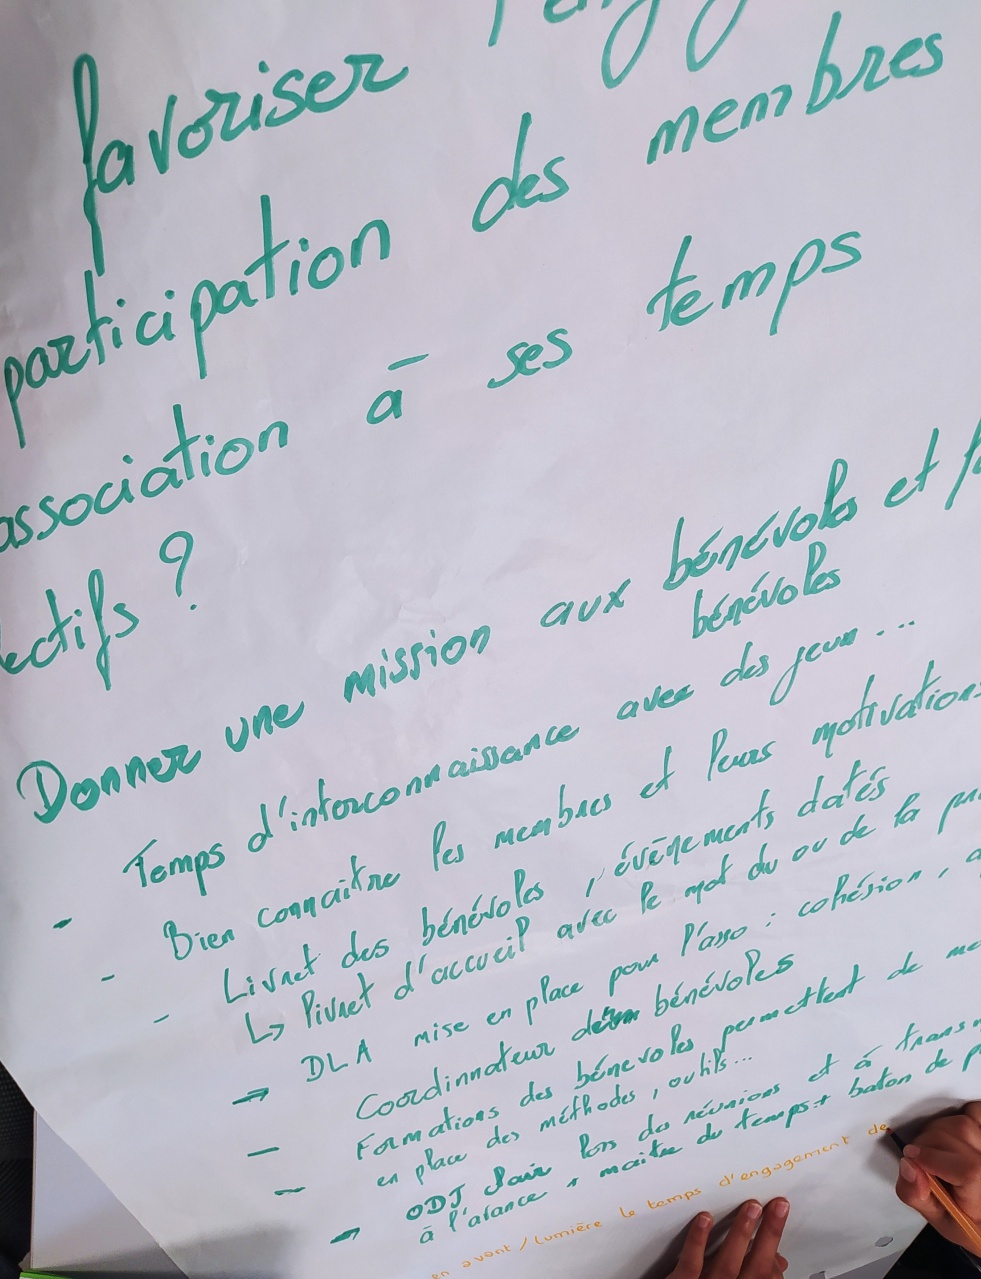 favoriser
participation des membres
association à ses temps
ectifs ?
Donner une mission aux bénévoles et
bénévoles
- Temps d'interconnaissance avec des jeux...
- Bien connaitre les membres et leurs motivations
- Livret des bénévoles, évènements datés
↳ livret d'accueil avec le mot du ou de la
⇒ DLA mise en place pour l'asso : cohésion,
- Coordinnateur bénévoles
- Formations des bénévoles permettent de
en place des méthodes, outils...
→ ODJ clair lors des réunions et à
à l'avance + maitre du temps + baton de
en avant / lumière le temps d'engagement de